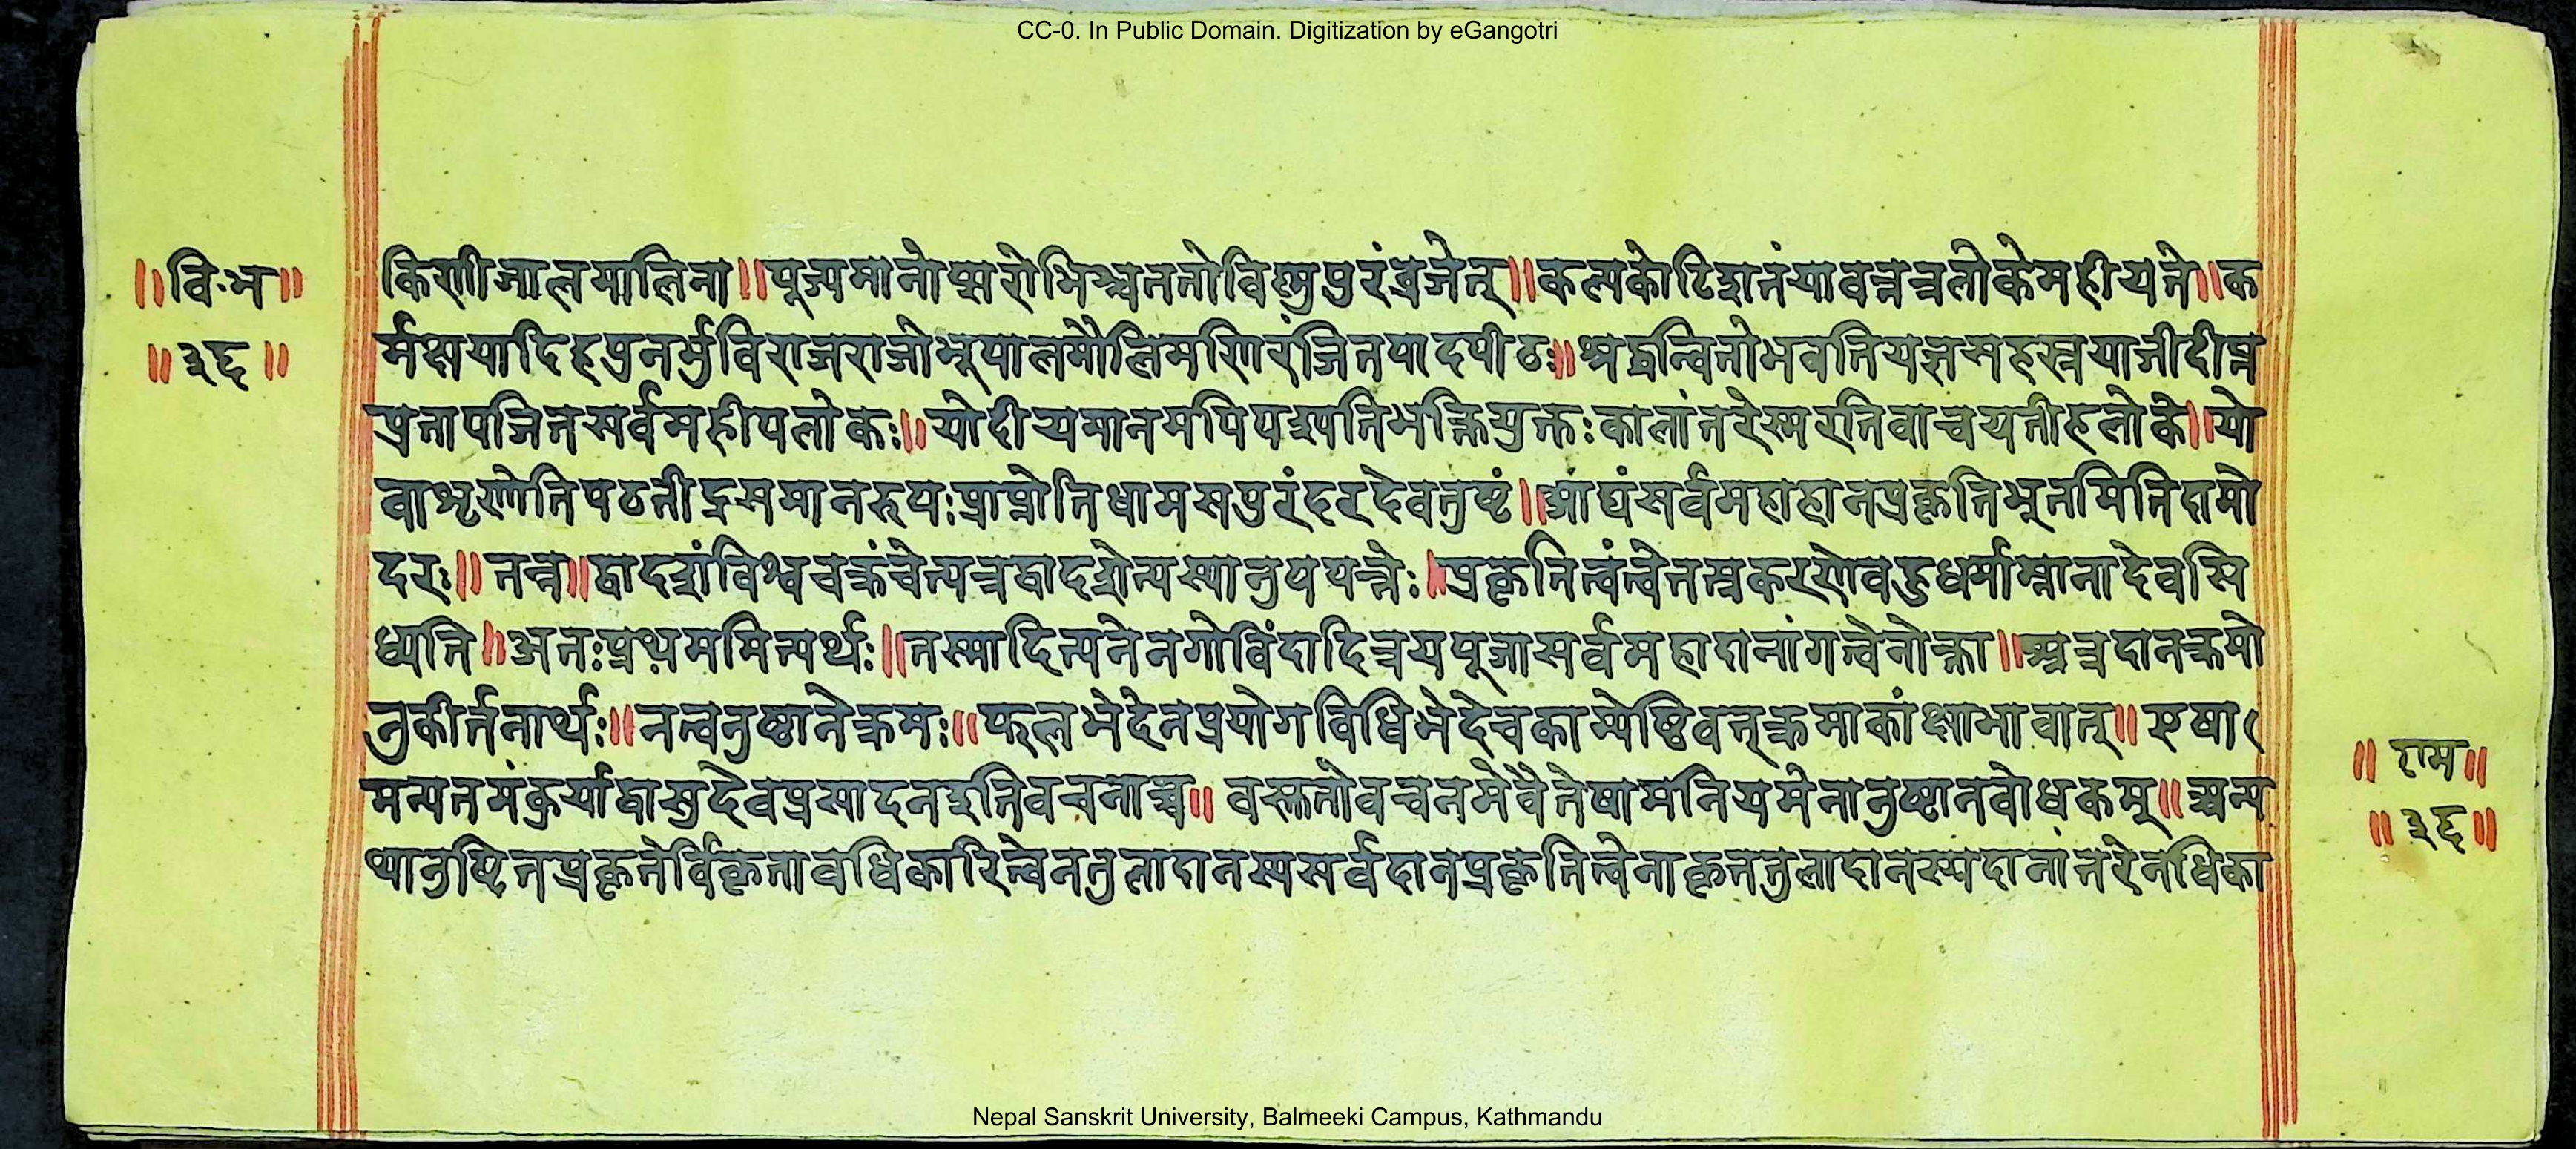 CC-0. In Public Domain. Digitization by eGangotri
॥वि·म॥
॥३६॥
किणीजालमालिना॥पूज्यमानोप्सरोभिश्चततोविष्णुपुरंव्रजेत्॥कल्पकोटिशतंयावत्तत्रलोकेमहीयते॥क
र्मक्षयादिहपुनर्भुविराजराजोभूपालमौलिमणिरंजितपादपीठः॥श्रद्धान्वितोभवतियज्ञसहस्रयाजीदीप्त
प्रतापजितसर्वमहीपलोकः॥योदीयमानमपिपश्यतिभक्तियुक्तःकालांतरेस्मरतिवाचयतीहलोके॥यो
वाशृणोतिपठतींद्रसमानरूपःप्राप्नोतिधामसपुरंदरदेवजुष्टं॥आद्यंसर्वमहादानप्रकृतिभूतमितिदामो
दरः॥तन्न॥द्वादशंविश्वचक्रंचेत्यत्रद्वादशेत्यस्यानुपपत्तेः॥प्रकृतित्वंत्वेतत्प्रकरणेबहुधर्माम्नानादेवसि
ध्यति॥अतःप्रथममित्यर्थः॥तस्मादित्यनेनगोविंदादित्रयपूजासर्वमहादानांगत्वेनोक्ता॥अत्रदानक्रमो
नुकीर्त्तनार्थः॥नत्वनुष्ठानेक्रमः॥फलभेदेनप्रयोगविधिभेदेचकाम्येष्टिवत्क्रमाकांक्षाभावात्॥एषा
मन्यतमंकुर्याद्वासुदेवप्रसादनइतिवचनाच्च॥ वस्तुतोवचनमेवैतेषामनियमेनानुष्ठानबोधकम्॥अन्य
थानुष्टितप्रकृतेर्विकृतावधिकारित्वेनतुलादानस्यसर्वदानप्रकृतित्वेनाकृततुलादानस्यदानांतरेनधिका
॥ राम॥
॥३६॥
Nepal Sanskrit University, Balmeeki Campus, Kathmandu